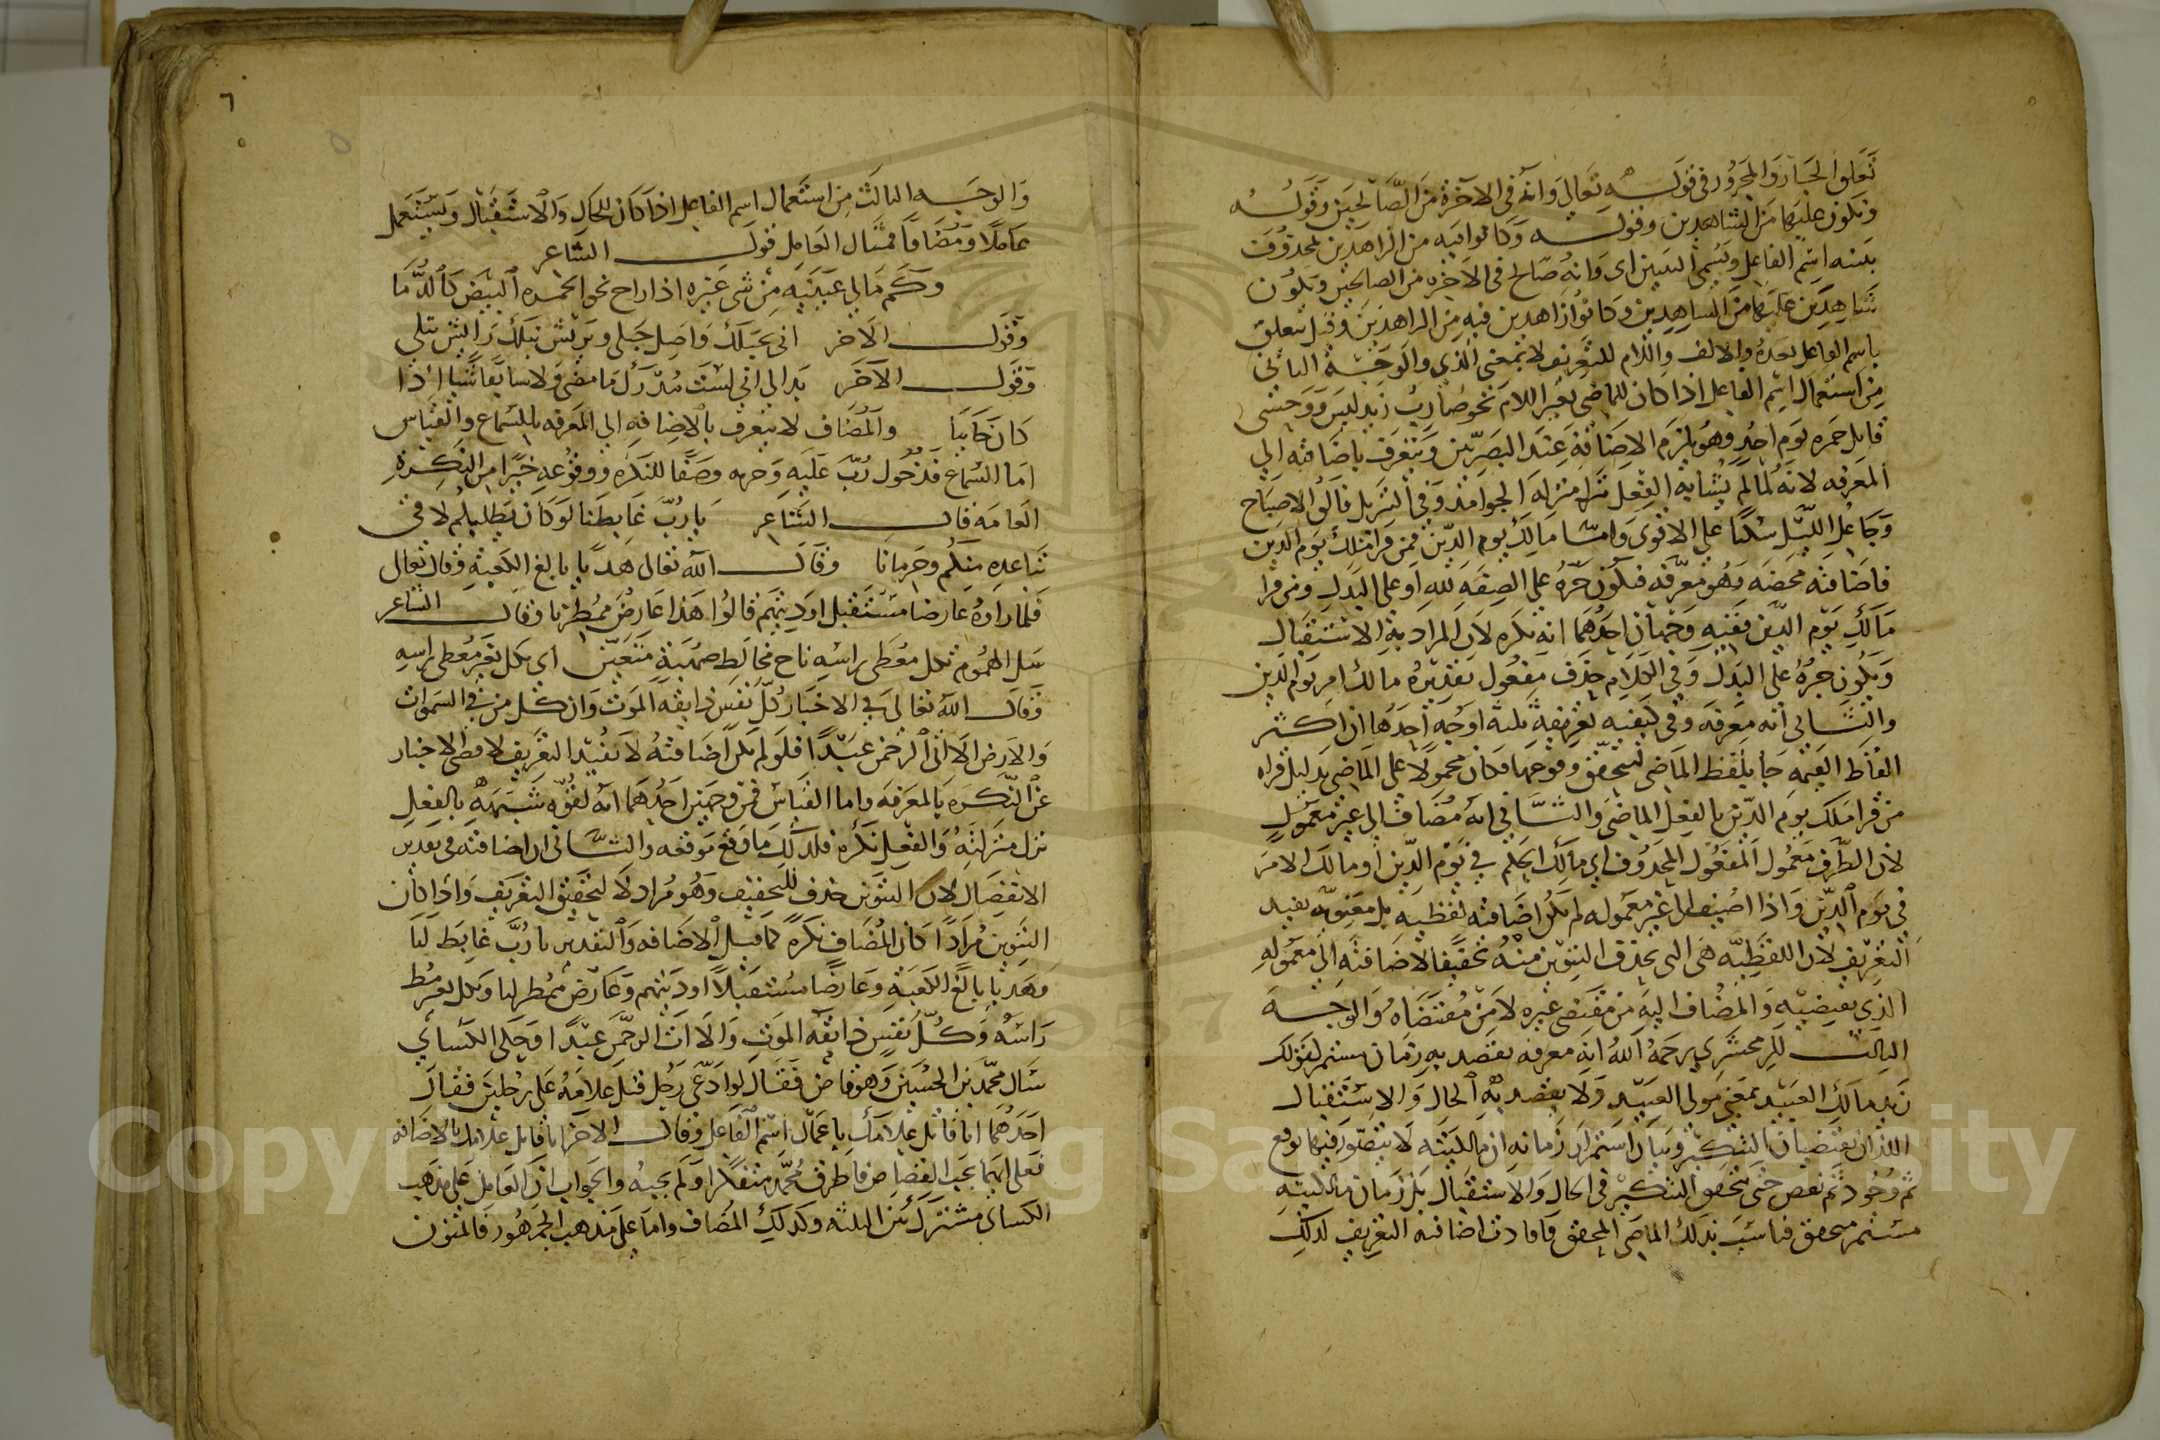 تعلق الجار والمجرور في قوله تعالى وانه في الآخرة من الصالحين وقوله
ونكون عليها من الشاهدين وقوله وكانوا فيه من الزاهدين بمحذوف
بينه اسم الفاعل ويسمى التبيين اى وانه صالح في الآخرة من الصالحين ونكون
شاهدين عليها من الشاهدين وكانوا زاهدين فيه من الزاهدين وقيل يتعلق
باسم الفاعل بعده والالف واللام للتعريف لا بمعنى الذي والوجه الثاني
من استعمال اسم الفاعل اذا كان للماضي بغير اللام نحو ضارب زيد امس ووحشي
قاتل حمزه يوم احد وهو يلزم الاضافة عند البصريين ويتعرف باضافته الي
المعرفه لانه لما لم يشابه الفعل نزل منزله الجوامد وفي التنزيل فالق الاصباح
وجاعل الليل سكنا على الاقوى واما مالك يوم الدين فمن قرا ملك يوم الدين
فاضافته محضه وهو معرفه فيكون جره على الصفه لله او على البدل ومن قرا
مالك يوم الدين ففيه وجهان احدهما انه نكره لان المراد به الاستقبال
ويكون جره على البدل وفي الكلام حذف مفعول تقديره مالك امر يوم الدين
والثاني انه معرفه وفي كيفيه تعريفه ثلثة اوجه احدها ان اكثر
الفاظ القيمه جا بلفظ الماضي لتحقق وقوعها فكان محمولا على الماضي بدليل قراه
من قرا ملك يوم الدين بالفعل الماضي والثاني انه مضاف الي غير معمول
لان الظرف معمول المفعول المحذوف اي مالك الحكم في يوم الدين او مالك الامر
في يوم الدين واذا اضيف الي غير معموله لم تكن اضافته لفظيه بل معنويه تفيد
التعريف لان اللفظيه هى التى يحذف التنوين منه تخفيفا لاضافته الي معموله
الذي يقتضيه والمضاف اليه من مقتضى غيره لا من مقتضاه والوجه
الثالث للزمخشري رحمه الله انه معرفه يقصد به زمان مستمر كقولك
زيد مالك العبيد بمعنى مولى العبيد ولا يقصد به الحال والاستقبال
اللذان يقتضيان التنكير وبيان استمرار زمانه ان مالكيته لا يتصور فيها توقع
ثم وجود ثم نقص حتى يتحقق التنكير في الحال والاستقبال بل زمان مالكيته
مستمر متحقق فناسب بذلك الماضي المحقق فافادت اضافته التعريف لذلك
٦
والوجه الثالث من استعمال اسم الفاعل اذا كان للحال والاستقبال ويستعمل
عاملا ومضافا فمثال العامل قول الشاعر
وكم مالي عينيه من شي غيره اذا راح نحو الجمره البيض كالدما
وقول الاخر اني بحبلك واصل حبلي وبريش نبلك رايش نبلي
وقول الآخر بدا لي اني لست مدرك ما مضى ولا سابقا شيا اذا
كان جاييا والمضاف لا يتعرف بالاضافه الي المعرفه بالسماع والقياس
اما السماع فدخول رب عليه وجره وصفا للنكره ووقوعه خبرا من النكرة
العامه قال الشاعر يا رب غابطنا لو كان يطلبكم لاقى
مباعده منكم وحرمانا وقال الله تعالى هديا بالغ الكعبة وقال تعالى
فلما راوه عارضا مستقبل اوديتهم قالوا هذا عارض ممطرنا وقال الشاعر
سل الهموم بكل معطى راسه ناج مخالط صهبة متعيس اي بكل بعير معطى راسه
وقال الله تعالى في الاخبار كل نفس ذايقه الموت وان كل من في السموات
والارض الا آتى الرحمن عبدا فلو لم تكن اضافته لا تفيد التعريف لامتنع الاخبار
عن النكره بالمعرفه واما القياس فمن وجهين احدهما انه لقوه شبهه بالفعل
نزل منزلته والفعل نكره فلذلك ما وقع موقعه والثاني ان اضافته في تقدير
الانفصال لان التنوين حذف للتخفيف وهو مراد لا لتحقيق التعريف واذا كان
التنوين مرادا كان المضاف نكرة كما قبل الاضافه والتقدير يا رب غابط لنا
وهديا بالغا الكعبة وعارضا مستقبلا اوديتهم وعارض ممطر لنا وبكل بعير معط
راسه وكل نفس ذايقه الموت والا آت الرحمن عبدا وحكى الكسايى
سال محمد بن الحسين وهو قاض فقال لو ادعى رجل قتل غلامه على رجلين فقال
احدهما انا قاتل غلامك باعمال اسم الفاعل وقال الاخر انا قاتل غلامك بالاضافه
فعلى ايهما يجب القصاص فاطرق محمد متفكرا ولم يجبه والجواب ان العامل على مذهب
الكساى مشترك بين الثلثه وكذلك المضاف واما على مذهب الجمهور فالمنون
Copyright © King Saud University
1957